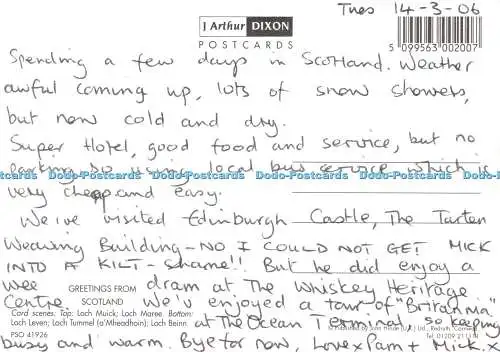 Tues 14-3-06
J Arthur DIXON
POSTCARDS
5 099563 002007
Spending a few days in Scotland. Weather
awful coming up, lots of snow showers,
but now cold and dry.
Super Hotel, good food and service, but no
parking so using local bus service which is
Dodo-Postcards Dodo-Postcards Dodo-Postcards Dodo-Postcards Dodo-Postcards
very cheap and easy.
We've visited Edinburgh Castle, The Tartan
Weaving Building - NO I COULD NOT GET MICK
INTO A KILT - Shame!! But he did enjoy a
wee dram at The Whiskey Heritage
GREETINGS FROM
SCOTLAND
Centre. We've enjoyed a tour of "Britannia"
Card scenes: Top: Loch Muick; Loch Maree. Bottom:
Loch Leven; Loch Tummel (a'Mhreadhoin); Loch Beinn.
at The Ocean Terminal, so keeping
PSO 41926
© Published by John Hinde (U.K.) Ltd., Redruth, Cornwall.
busy and warm. Bye for now, Love x Pam + Mick x